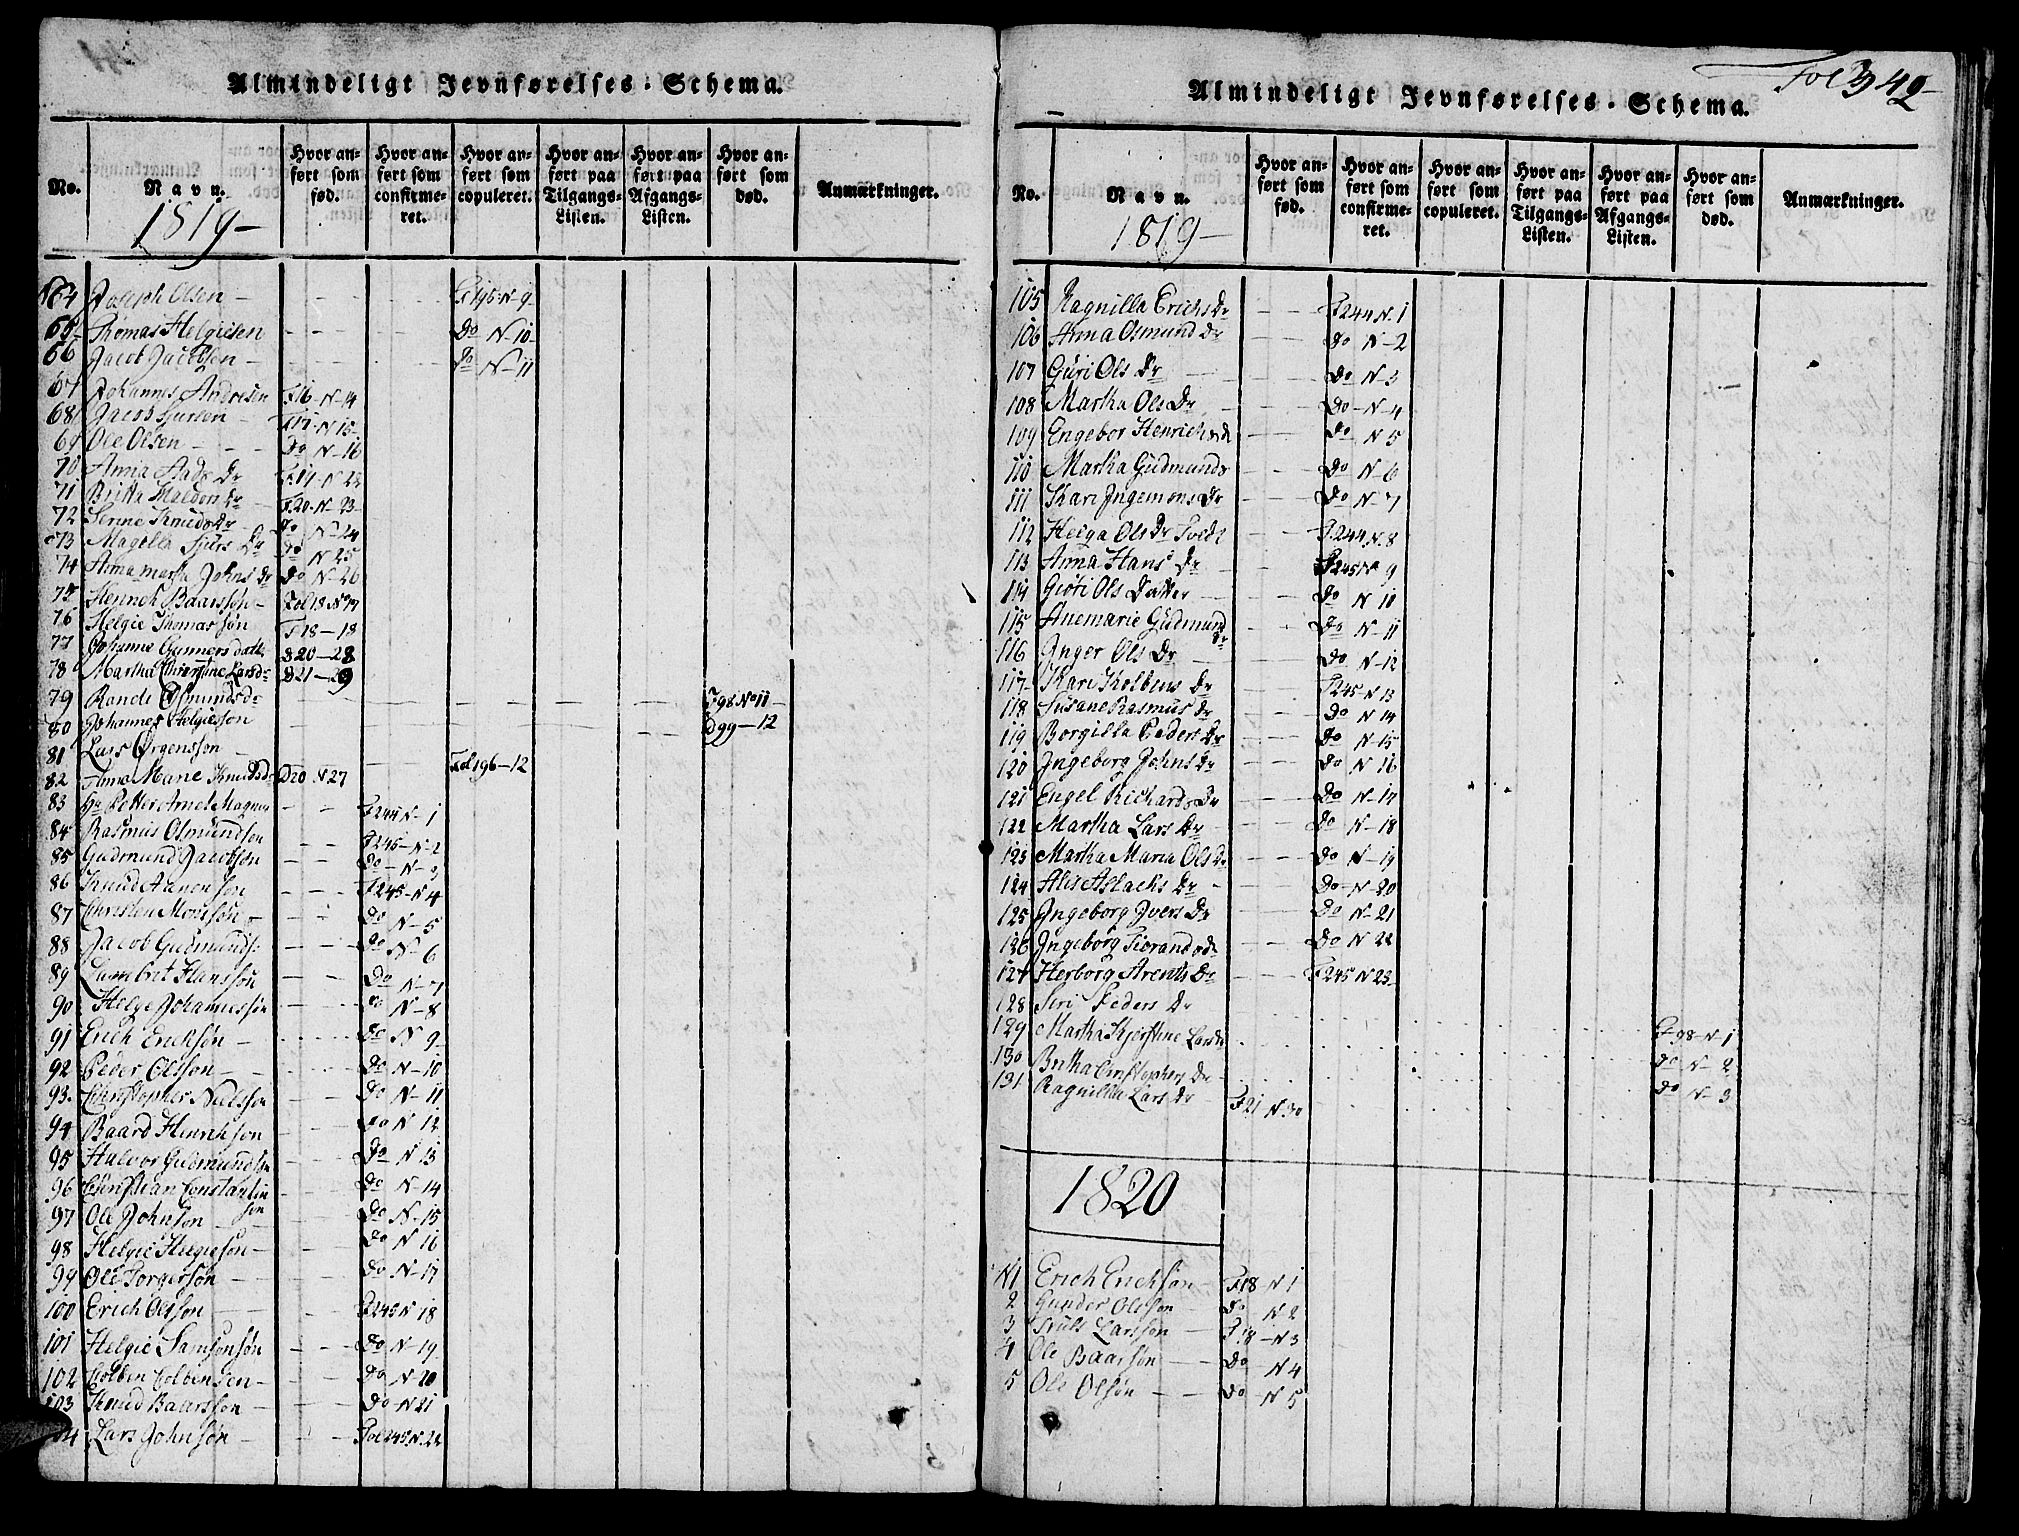 Almindeligt Jevnførelses-Schema.
No. Navn. Hvor anført som fød. Hvor anført som confirmeret. Hvor anført som copuleret. Hvor anført paa Tilgangs-Listen. Hvor anført paa Afgangs-Listen. Hvor anført som død. Anmærkninger.
1819-
64 Joseph Olsen - F 195-N-9-
65 Thomas Helgiesen Do N-10-
66 Jacob Jacobsen - Do N-11
67 Johannes Andresen F16-N-14
68 Jacob Sjursøn - F17-N 15-
69 Ole Olsen - Do N-16
70 Anna Aads Dr F19-N-22
71 Britta Haldors Dr F.20-N-23-
72 Serine Knuds Dr Do N-24
73 Magilla Sjurs Dr Do N 25
74 Anna martha Johns Dr Do N-26
75 Henrich Baarssøn - Fol 18 No 17
76 Helgie Thomassøn F18-18
77 Johanne Gunners datter F20-28
78 Martha Christine Larsdr F21-29
79 Rande Osmundsdr F98 No 11-
80 Johannes Helgiesson F99-12
81 Lars Ørgensson Fol 196-12
82 Anna Marie Knudsdr F20 N27
83 Hr Petter Arnet Magnus F244 N-1
84 Rasmus Osmundson F245-N-2
85 Gudmund Jacobsøn Do-N-3
86 Knud Aanensøn F245-N4
87 Christen Monsøn - Do N-5
88 Jacob Gudmunds: Do N-6
89 Lambret Hanssøn Do N-7
90 Helge Johannessøn Do N-8
91 Erich Erichsøn - Do N 9-
92 Peder Olsson - Do N-10
93 Christopher Nielssøn Do N-11
94 Baard Henrichson Do N 12
95 Halvor Gudmundssøn Do N 13
96 Christian Constantinsøn Do N-14
97 Ole Johnsøn Do N-15
98 Helgie Helgiesøn - Do N 16
99 Ole Torgersøn - Do N-17
100 Erich Olssøn F245 N 18
101 Helgie Samsonsøn Do N-19
102 Colben Colbensen - Do N-20
103 Knud Baarssøn - Do-N21
104 Lars Johnsøn - Fol 245 N.22
Fol 342-
Almindeligt Jevnførelses-Schema.
No. Navn. Hvor anført som fød. Hvor anført som confirmeret. Hvor anført som copuleret. Hvor anført paa Tilgangs-Listen. Hvor anført paa Afgangs-Listen. Hvor anført som død. Anmærkninger.
1819-
105 Ragnilla Erichs Dr F244 N.1
106 Anna Osmund Dr Do N-2
107 Guri Ols Dr Do N-3
108 Martha Ols Dr Do-N-4
109 Engebor Henrichsdr Do N 5
110 Martha Gudmunds Do N-6
111 Kari Ingemons Dr Do N-7
112 Helga Ols Dr F.244 N.8
113 Anna Hans Dr F245 N 9
114 Giøri Ols Datter Do N 10
115 Anemarie Gudmund Dr Do N-11
116 Inger Ols Dr Do N-12
117 Kari Kolbens Dr F245 N 13
118 Susane Rasmus Dr Do N 14
119 Borgilla Peders Dr Do N-15
120 Ingeborg Johns Dr Do N 16
121 Engel Richards Dr Do N-17
122 Martha Lars Dr Do N-18
123 Martha Maria Ols Dr Do N-19
124 Alis Aslachs Dr Do-N-20
125 Ingeborg Ivers Dr Do N-21
126 Ingeborg Tiorandsdr Do N 22
127 Herborg Arents Dr F245 N 23-
128 Siri Peders Dr F98-N-1
129 Martha Kjerstine Larsdr Do N-2
130 Britha Christophers Dr Do N-3
131 Ragnilla Lars Dr F21 N.30
1820
N1 Erich Erichsøn F.18-N 1
2 Gunder Olssøn Do N 2
3 Truls Larssøn F 18-N3
4 Ole Baarsøn Do N4
5 Ole Olsøn Do N 5